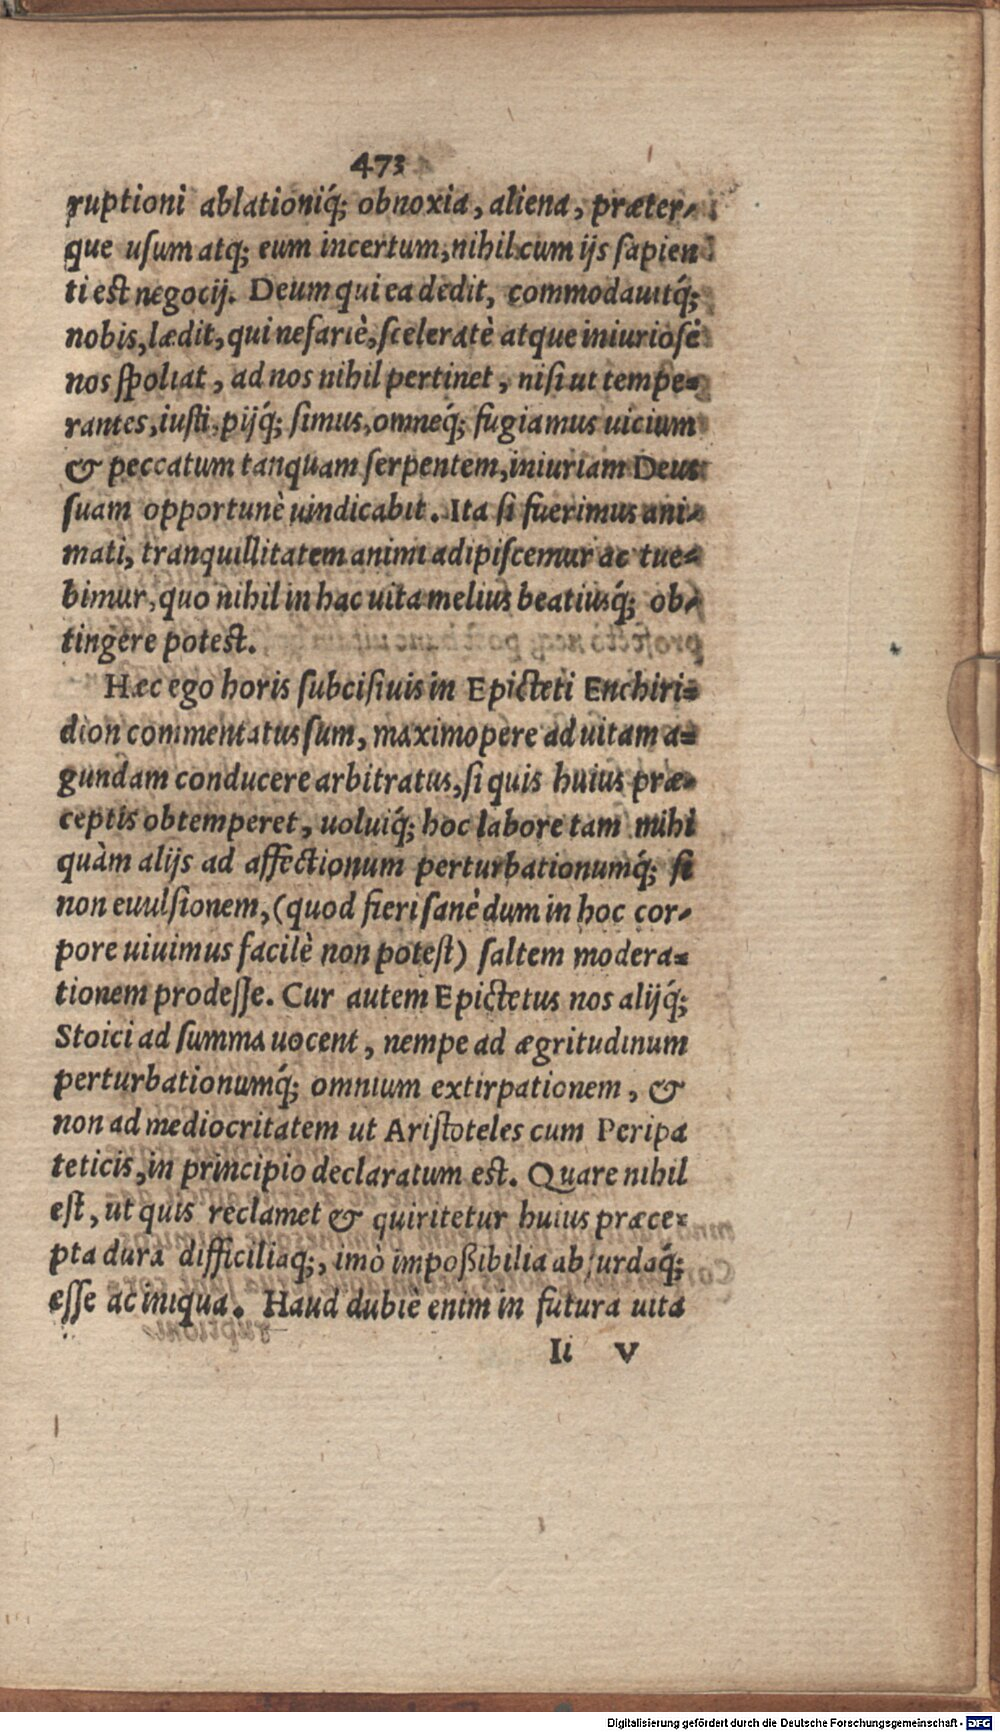 473
ruptioni ablationiq́; obnoxia, aliena, præter-
que uſum atq; eum incertum, nihil cum ijs ſapien
ti est negocij. Deum qui ea dedit, commodauitq́;
nobis, lædit, qui nefariè, ſceleratè atque iniurioſè
nos ſpoliat, ad nos nihil pertinet, niſi ut tempe-
rantes, iuſti, pijq́; ſimus, omneq́; fugiamus uicium
& peccatum tanquam ſerpentem, iniuriam Deus
ſuam opportunè uindicabit. Ita ſi fuerimus ani-
mati, tranquillitatem animi adipiſcemur ac tue-
bimur, quo nihil in hac uita melius beatiusq́; ob-
tingere potest.
Hæc ego horis ſubciſiuis in Epicteti Enchiri-
dion commentatus ſum, maximopere ad uitam a-
gundam conducere arbitratus, ſi quis huius præ-
ceptis obtemperet, uoluiq́; hoc labore tam mihi
quàm alijs ad affectionum perturbationumq́; ſi
non euulſionem, (quod fieri ſanè dum in hoc cor-
pore uiuimus facilè non poteſt) ſaltem modera-
tionem prodeſſe. Cur autem Epictetus nos alijq́;
Stoici ad ſumma uocent, nempe ad ægritudinum
perturbationumq́; omnium extirpationem, &
non ad mediocritatem ut Ariſtoteles cum Peripa
teticis, in principio declaratum est. Quare nihil
eſt, ut quis reclamet & quiritetur huius præce-
pta dura difficiliaq;, imò impoßibilia abſurdaq́;
eſſe ac iniqua. Haud dubiè enim in futura uita
Ii v
Digitalisierung gefördert durch die Deutsche Forschungsgemeinschaft - DFG